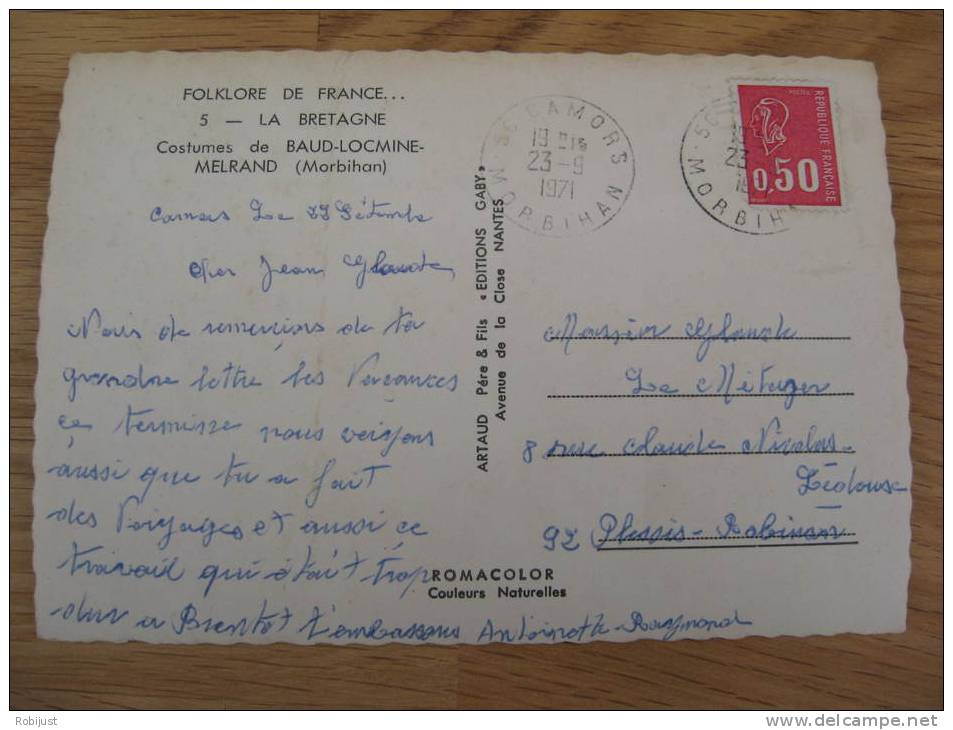 FOLKLORE DE FRANCE...
5 — LA BRETAGNE
Costumes de BAUD-LOCMINE-
MELRAND (Morbihan)
Camors Le
Cher Jean Claude
Nous te remercions de ta
grandre lettre les Vacances
ce termine nous voiyons
aussi que tu a fait
des Voiyages et aussi ce
travail qui était trop
dur a Bientot t'embassons Antoinette Raymond
ARTAUD Père & Fils « EDITIONS GABY »
Avenue de la Close NANTES
ROMACOLOR
Couleurs Naturelles
56 CAMORS
19 H 15
23 -9
1971
MORBIHAN
56
23
MORBIH
POSTES
REPUBLIQUE FRANÇAISE
0,50
Monsieur Claude
Le Métayer
8 rue Claude Nicolas
Ledoux
92 Plessis-Robinson
Robijust
www.delcampe.net